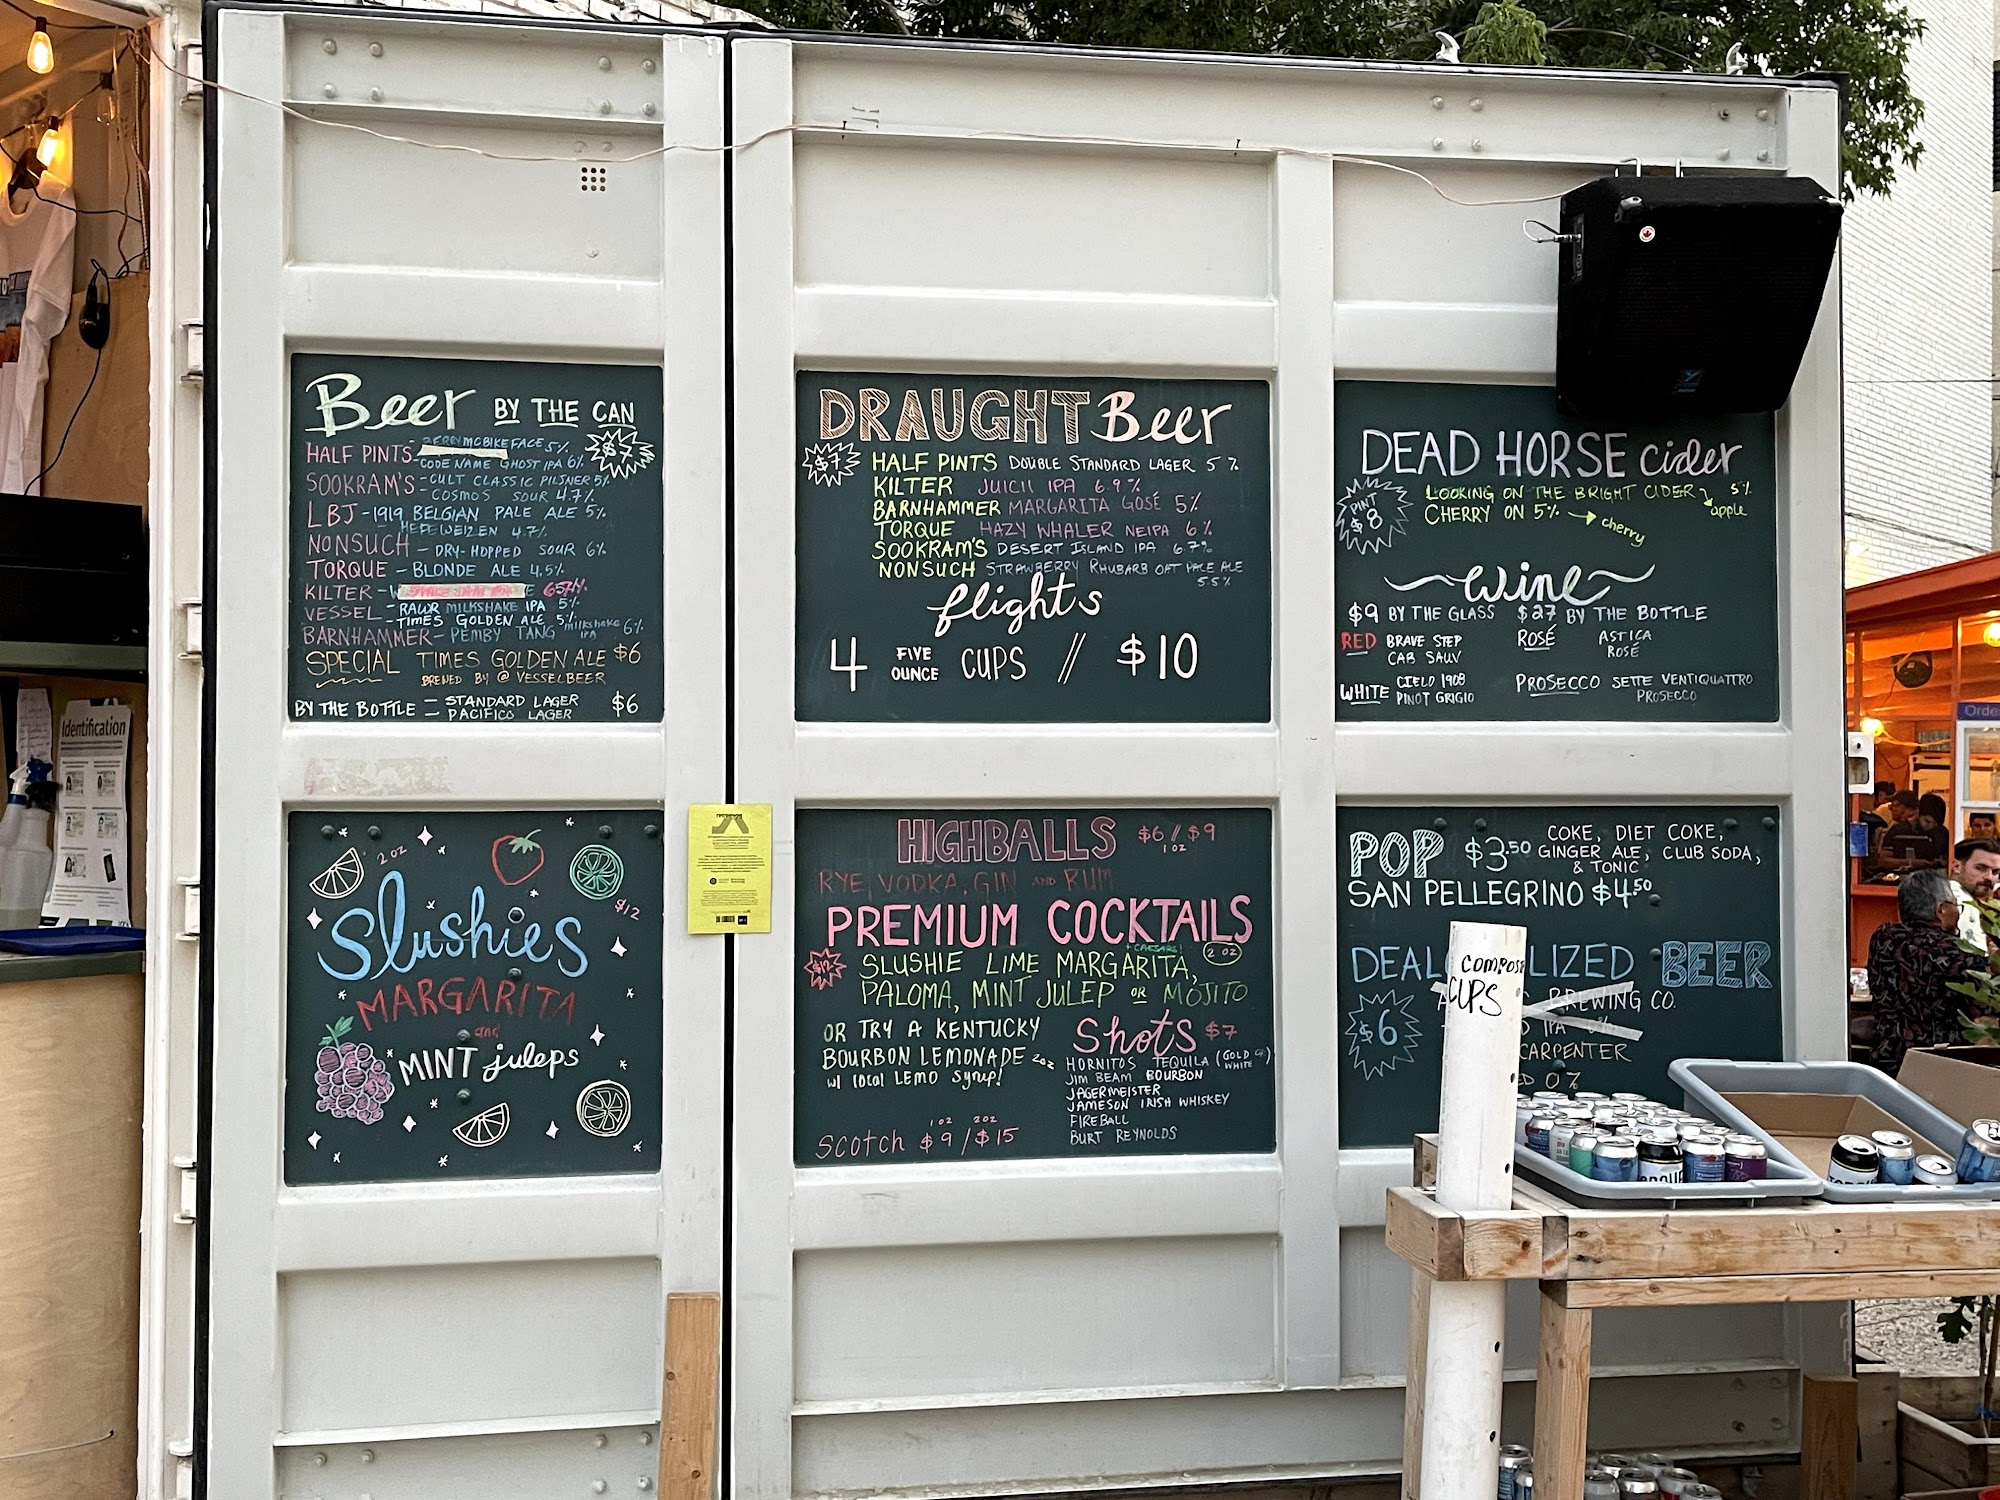 Identification
Beer BY THE CAN
$7
HALF PINTS - McBIKEFACE 5%
- CODE NAME GHOST IPA 6%
SOOKRAM'S - CULT CLASSIC PILSNER 5%
COSMOS SOUR 4.7%
LBJ - 1919 BELGIAN PALE ALE 5%
- HEFEWEIZEN 4.7%
NONSUCH - DRY-HOPPED SOUR 6%
TORQUE - BLONDE ALE 4.5%
KILTER -
VESSEL - RAWR MILKSHAKE IPA 5%
- TIMES GOLDEN ALE 5%
BARNHAMMER - PEMBY TANG milkshake IPA 6%
SPECIAL TIMES GOLDEN ALE $6
BREWED BY @VESSELBEER
BY THE BOTTLE - STANDARD LAGER $6
PACIFICO LAGER
DRAUGHT Beer
$7
HALF PINTS DOUBLE STANDARD LAGER 5%
KILTER JUICII IPA 6.9%
BARNHAMMER MARGARITA GOSÉ 5%
TORQUE HAZY WHALER NEIPA 6%
SOOKRAM'S DESERT ISLAND IPA 6.7%
NONSUCH STRAWBERRY RHUBARB OAT PALE ALE
5.5%
flights
4 FIVE OUNCE CUPS // $10
DEAD HORSE cider
PINT $8
LOOKING ON THE BRIGHT CIDER 5%
apple
CHERRY ON 5% → cherry
wine
$9 BY THE GLASS $27 BY THE BOTTLE
RED BRAVE STEP
CAB SAUV
ROSÉ ASTICA
ROSÉ
WHITE CIELO 1908
PINOT GRIGIO
PROSECCO SETTE VENTIQUATTRO
PROSECCO
2 oz
Slushies $12
MARGARITA
and
MINT juleps
HIGHBALLS $6 / $9
1 oz
RYE, VODKA, GIN AND RUM
PREMIUM COCKTAILS
+ CAESARS! 2 oz
$12
SLUSHIE LIME MARGARITA,
PALOMA, MINT JULEP OR MOJITO
OR TRY A KENTUCKY
BOURBON LEMONADE 2oz
w/ local LEMO Syrup!
1 oz 2 oz
SCOTCH $9 / $15
Shots $7
HORNITOS TEQUILA (GOLD OR WHITE)
JIM BEAM BOURBON
JAGERMEISTER
JAMESON IRISH WHISKEY
FIREBALL
BURT REYNOLDS
POP $3.50 COKE, DIET COKE,
GINGER ALE, CLUB SODA,
& TONIC
SAN PELLEGRINO $4.50
DEAL LIZED BEER
$6
BREWING CO.
IPA
CARPENTER
0%
COMPOST
CUPS
Orde